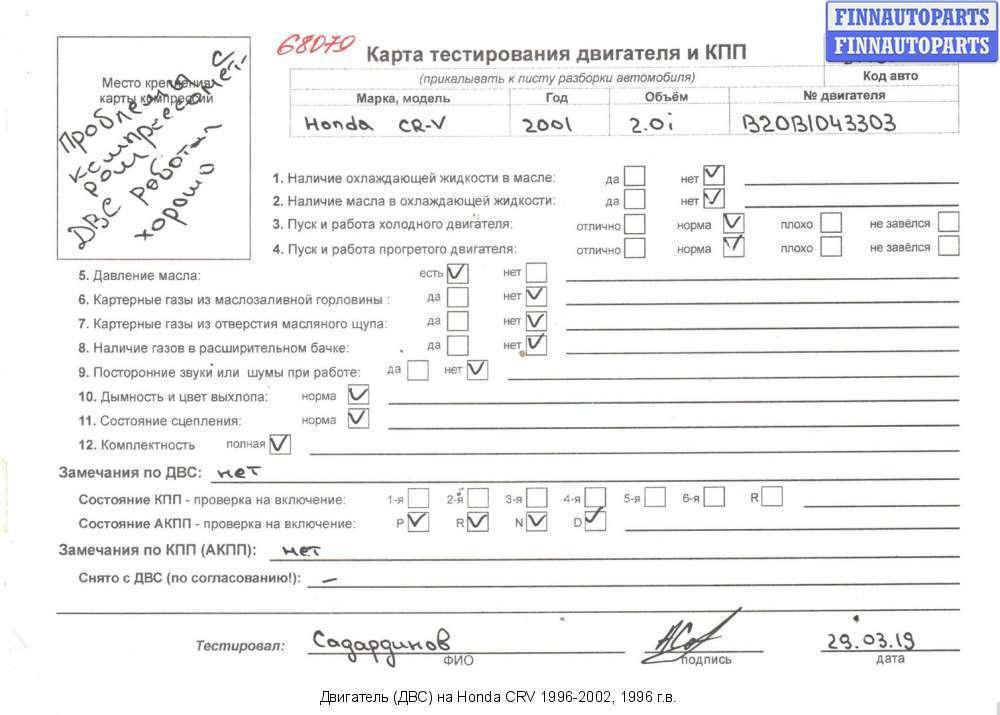 FINNAUTOPARTS
FINNAUTOPARTS
68070
Карта тестирования двигателя и КПП
(прикалывать к листу разборки автомобиля)
Код авто
Марка, модель Год Объём № двигателя
Honda CR-V 2001 2.0i B20B1043303
Место крепления
карты компрессий
Проблема с
компрессомет-
ром
ДВС работал
хорошо
1. Наличие охлаждающей жидкости в масле: да нет
2. Наличие масла в охлаждающей жидкости: да нет
3. Пуск и работа холодного двигателя: отлично норма плохо не завёлся
4. Пуск и работа прогретого двигателя: отлично норма плохо не завёлся
5. Давление масла: есть нет
6. Картерные газы из маслозаливной горловины : да нет
7. Картерные газы из отверстия масляного щупа: да нет
8. Наличие газов в расширительном бачке: да нет
9. Посторонние звуки или шумы при работе: да нет
10. Дымность и цвет выхлопа: норма
11. Состояние сцепления: норма
12. Комплектность полная
Замечания по ДВС: нет
Состояние КПП - проверка на включение: 1-я 2-я 3-я 4-я 5-я 6-я R
Состояние АКПП - проверка на включение: P R N D
Замечания по КПП (АКПП): нет
Снято с ДВС (по согласованию!): –
Тестировал: Садардинов 29.03.19
ФИО подпись дата
Двигатель (ДВС) на Honda CRV 1996-2002, 1996 г.в.